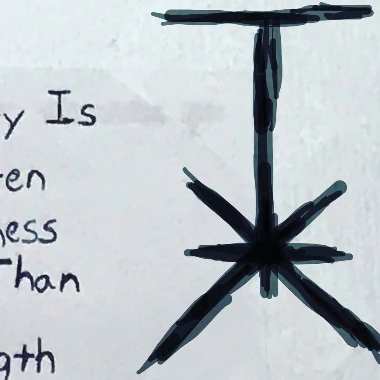 y Is
en
ess
Than
gth